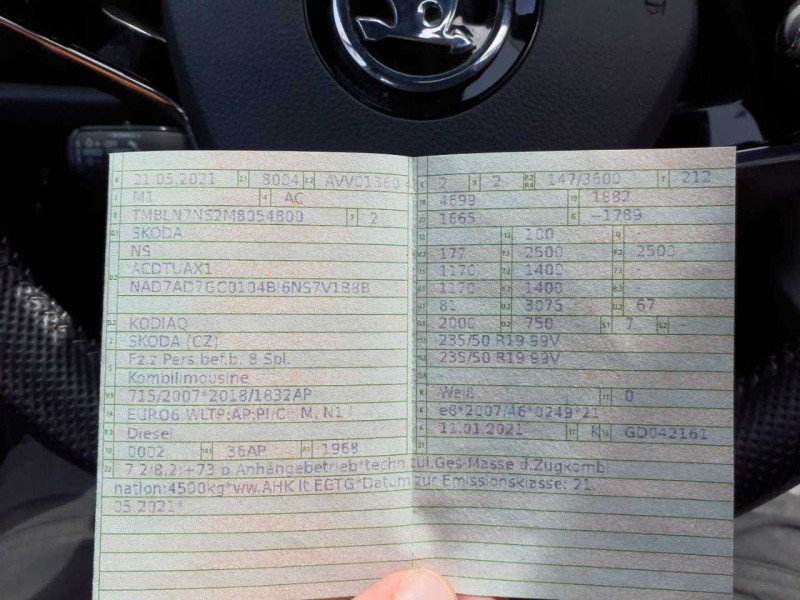 B 21.05.2021 2.1 8004 2.2 AVV01360
J M1 4 AC
E TMBLN7NS2M8054800 3 2
D.1 SKODA
NS
D.2 ACDTUAX1
NAD7AD7GC0104B
D.3 KODIAQ
2 SKODA (CZ)
5 Fz.z.Pers.bef.b. 8 Spl.
Kombilimousine
V.9 715/2007*2018/1832AP
14 EURO6;WLTP;AP;PI/CI M, N1 I
P.3 Diesel
10 0002 14.1 36AP P.1 1968
L 2 9 2 P.2 P.4 147/3600 T 212
18 4699 19 1882
20 1665 G -1789
12 - 13 100 Q -
V.7 177 F.1 2500 F.2 2500
7.1 1170 7.2 1400 7.3 -
8.1 1170 8.2 1400 8.3 -
U.1 81 U.2 3075 U.3 67
O.1 2000 O.2 750 S.1 7 S.2 -
15.1 235/50 R19 99V
15.2 235/50 R19 99V
R Weiß 11 0
K e8*2007/46*0249*21
6 11.01.2021 17 K 16 GD042161
21
22 7.2/8.2:+73 b.Anhängebetrieb*techn.zul.Ges-Masse d.Zugkombi
nation:4500kg*ww.AHK lt.EGTG*Datum zur Emissionsklasse: 21.
05.2021*